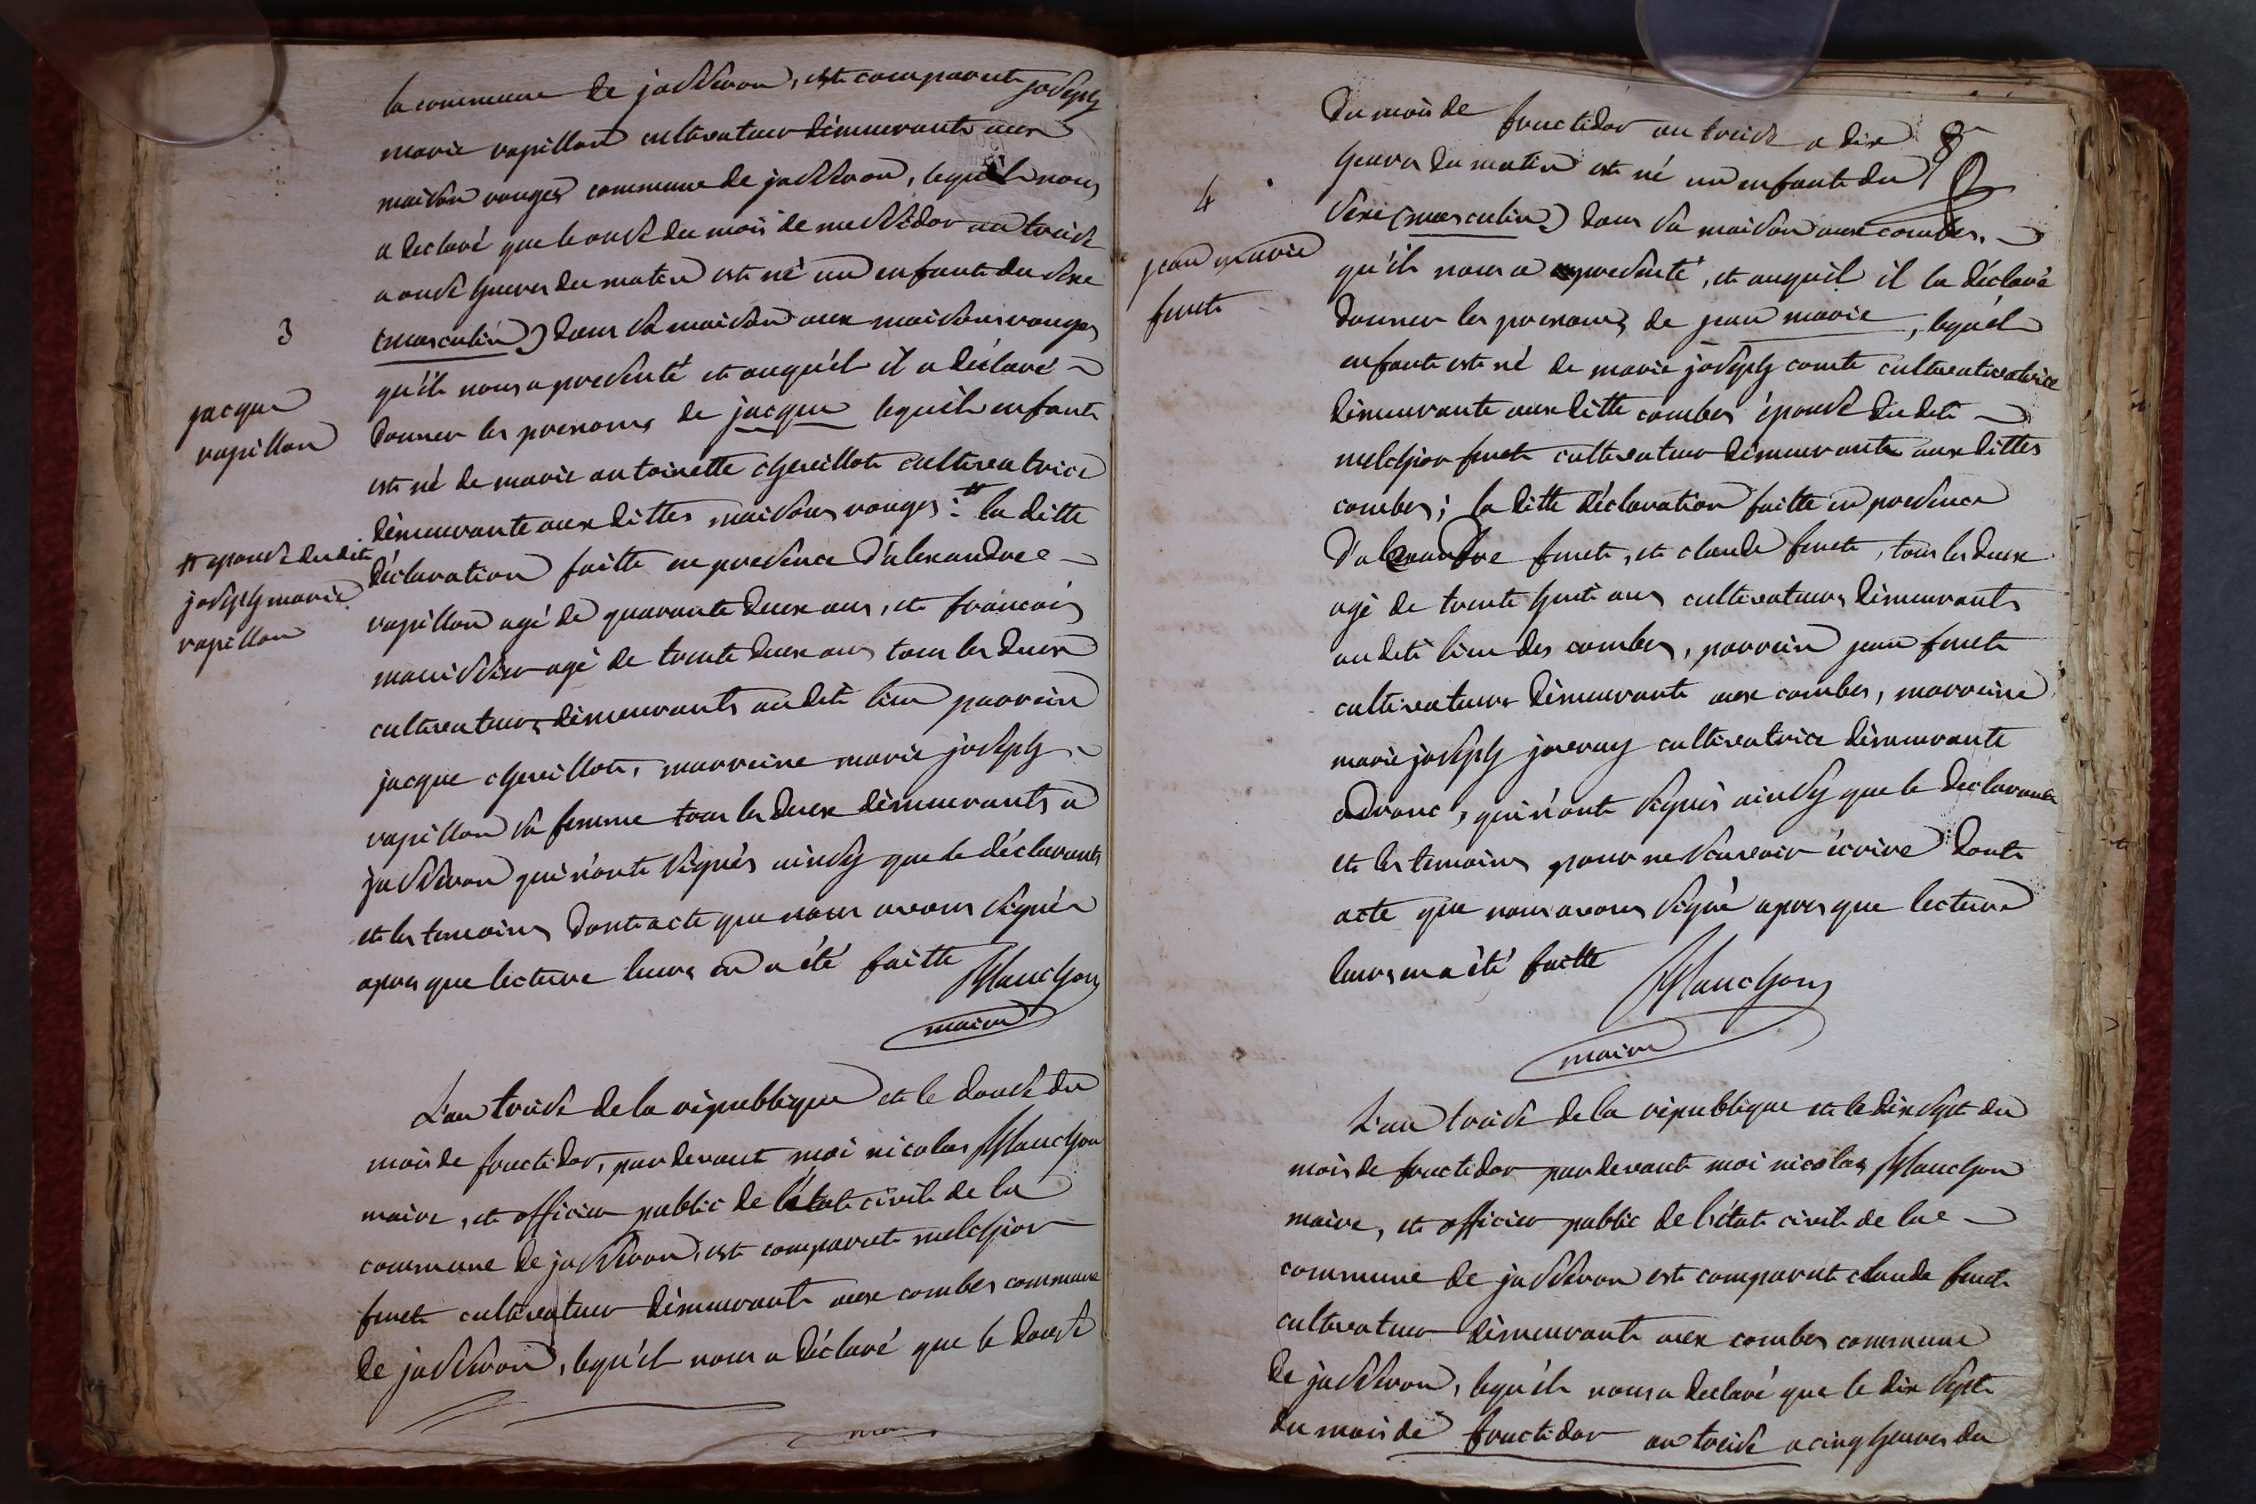 la commune de jasseron, est comparut joseph
marie rapillon cultivateur dèmeurant aux
maison rouges commune de jasseron, lequ'el nous
a declaré que le onse du mois de messidor an treise
a onse heures du matin est né un enfant du sexe
(masculin) dans sa maison aux maisons rouges
qu'il nous a presenté et auqu'el il a déclaré
donner les prenoms de jacque lequ'el enfant
est né de marie antoinette chevillot cultivatrice
dèmeurante aux dittes maisons rouges : # la ditte
déclaration faitte en presence d'alexandre
rapillon agé de quarante deux ans, et francois
agé de trente deux ans tous les deux
cultivateurs dèmeurants audit lieu parrein
jacque chevillot, marreine marie joseph
rapillon sa femme tous les deux dèmeurants a
jasseron qui n'ont signés ainsy que le déclarant
et les temoins dont acte que nous avons signés
apres que lecture leurs en a été faitte
maire
3
jacque
rapillon
# epouse dudit
joseph marie
rapillon
L'an treise de la république et le douse du
mois de fructidor, par devant moi nicolas
maire, et officier public de l'état civil de la
commune de jasseron, est comparut melchior
furet cultivateur dèmeurant aux combes commune
de jasseron, lequ'el nous a déclaré que le douse
du mois de fructidor an treise a dix
heures du matin est né un enfant du
sexe (masculin) dans sa maison aux combes,
qu'il nous a presenté, et auquel il la déclaré
donner les prenoms de jean marie, lequ'el
enfant est né de marie joseph comte cultivativatrice
dèmeurante aux ditte combes épouse dudit
melchior furet cultivateur dèmeurant aux dittes
combes ; la ditte déclaration faitte en presence
d'alexandre furet, et claude furet, tous les deux
agé de trente huit ans cultivateurs dèmeurants
audit lieu des combes, parrein jean furet
cultivateurs dèmeurant aux combes, marreine
marie joseph cultivatrice dèmeurante
a drom, qui n'ont signés ainsy que le déclarant
et les temoins pour ne scavoir écrire dont
acte que nous avons signé apres que lecture
leurs en a été faitte
maire
4
jean marie
furet
L'an treise de la république et le dix sept du
mois de fructidor par devant moi nicolas
maire, et officier public de l'état civil de la
commune de jasseron est comparut claude furet
cultivateur dèmeurant aux combes commune
de jasseron, lequ'el nous a declaré que le dix sept
du mois de fructidor an treise a cinq heures du